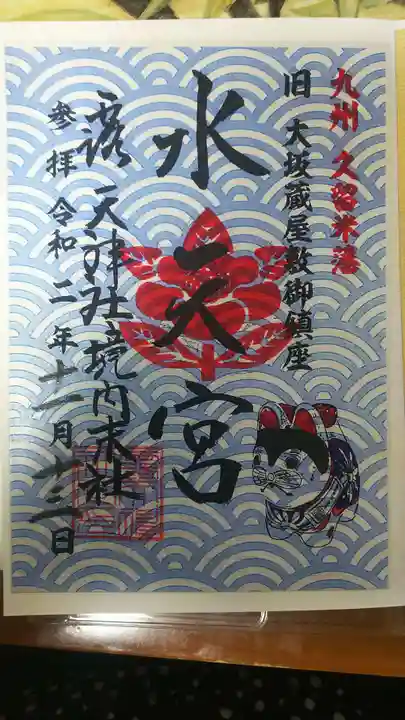 九州 久留米藩
旧 大坂蔵屋敷御鎮座
水天宮
露 天神社境内末社
参拝 令和二年十一月十三日